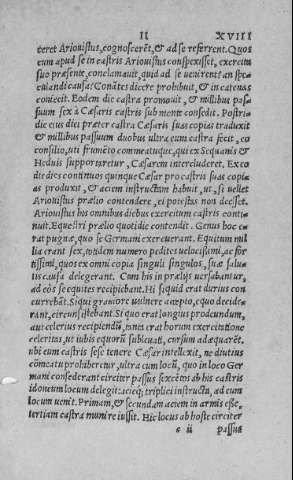 II XVIII
ceret Ariouistus, cognosceret, & ad se referrent. Quos
cum apud se in castris Ariouistus conspexisset, exercitu
suo præsente, conclamauit, quid ad se uenirent? an spe
culandi causa? Conãtes dicere prohibuit, & in catenas
coniecit. Eodem die castra promouit, & millibus pas
suum sex à Cæsaris castris sub monte consedit. Postri
die eius diei præter castra Cæsaris suas copias traduxit
& millibus passuum duobus ultra eum castra fecit, co
consilio, uti frumẽto commeatuque, qui ex Sequanis &
Heduis supportaretur, Cæsarem intercluderet. Ex eo
die dies continuos quinque Cæsar pro castris suas copi
as produxit, & aciem instructam habuit, ut, si uellet
Ariouistus prælio contendere, ei potestas non deesset.
Ariouistus his omnibus diebus exercitum castris conti
nuit. Equestri prælio quotidie contendit. Genus hoc e‑
rat pugnæ, quo se Germani exercuerant. Equitum mil
lia erant sex, totidem numero pedites uelocissimi, ac for
tissimi, quos ex omni copia singuli singulos, suæ salu‑
tis causa delegerant. Cum his in prælijs uersabantur,
ad eos se equites recipiebant. Hi siquid erat durius con
currebãt. Siqui grauiore uulnere accepto, equo decide‑
rant, circunsistebant. Si quo erat longius prodeundum,
aut celerius recipiendũ, tanta erat horum exercitatione
celeritas, ut iubis equorũ subleuati, cursum adæquarẽt.
ubi eum castris sese tenere Cæsar intellexit, ne diutius
cõmeatu prohiberetur, ultra eum locũ, quo in loco Ger
mani consederant circiter passus sexcẽtos ab his castris
idoneum locum delegit: acieq; triplici instructa, ad eum
locum uenit. Primam, & secundam aciem in armis esse,
tertiam castra munire iussit. Hic locus ab hoste circiter
c ii passus